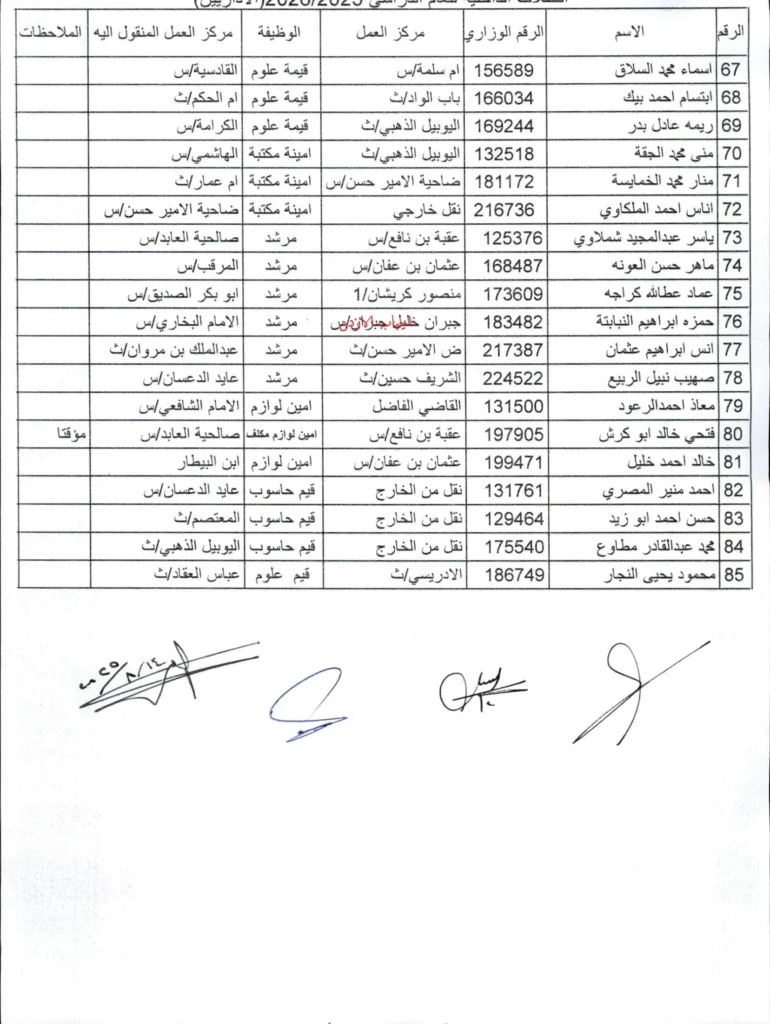 التنقلات الداخلية للعام الدراسي 2026/2025(الاداريين)
الرقم الاسم الرقم الوزاري مركز العمل الوظيفة مركز العمل المنقول اليه الملاحظات
67 اسماء محمد السلاق 156589 ام سلمة/س قيمة علوم القادسية/س
68 ابتسام احمد بيك 166034 باب الواد/ث قيمة علوم ام الحكم/ث
69 ريمه عادل بدر 169244 اليوبيل الذهبي/ث قيمة علوم الكرامة/س
70 منى محمد الجقة 132518 اليوبيل الذهبي/ث امينة مكتبة الهاشمي/س
71 منار محمد الخمايسة 181172 ضاحية الامير حسن/س امينة مكتبة ام عمار/ث
72 اناس احمد الملكاوي 216736 نقل خارجي امينة مكتبة ضاحية الامير حسن/س
73 ياسر عبدالمجيد شملاوي 125376 عقبة بن نافع/س مرشد صالحية العابد/س
74 ماهر حسن العونه 168487 عثمان بن عفان/س مرشد المرقب/س
75 عماد عطالله كراجه 173609 منصور كريشان/1 مرشد ابو بكر الصديق/س
76 حمزه ابراهيم النبابتة 183482 جبران خليل جبران/س مرشد الامام البخاري/س
77 انس ابراهيم عثمان 217387 ض الامير حسن/ث مرشد عبدالملك بن مروان/ث
78 صهيب نبيل الربيع 224522 الشريف حسين/ث مرشد عايد الدعسان/س
79 معاذ احمدالرعود 131500 القاضي الفاضل امين لوازم الامام الشافعي/س
80 فتحي خالد ابو كرش 197905 عقبة بن نافع/س امين لوازم مكلف صالحية العابد/س مؤقتا
81 خالد احمد خليل 199471 عثمان بن عفان/س امين لوازم ابن البيطار
82 احمد منير المصري 131761 نقل من الخارج قيم حاسوب عايد الدعسان/س
83 حسن احمد ابو زيد 129464 نقل من الخارج قيم حاسوب المعتصم/ث
84 محمد عبدالقادر مطاوع 175540 نقل من الخارج قيم حاسوب اليوبيل الذهبي/ث
85 محمود يحيى النجار 186749 الادريسي/ث قيم علوم عباس العقاد/ث
٢٠٢٥/٨/١٤